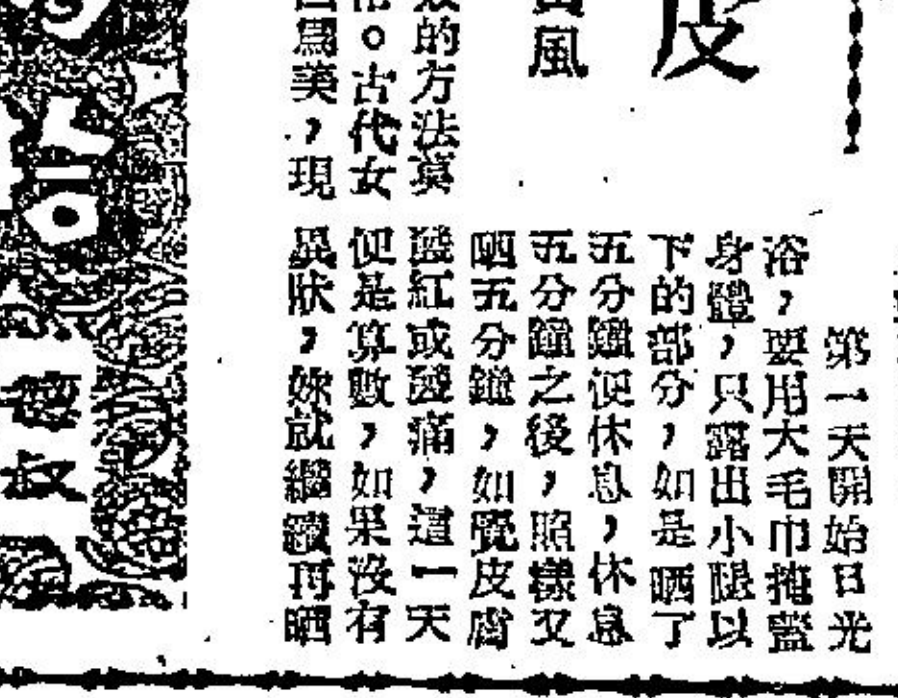 皮
黃風
的方法莫
。古代女
爲美，現
第一天開始日光
浴，要用大毛巾掩蓋
身體，只露出小腿以
下的部分，如是晒了
五分鐘便休息，休息
五分鐘之後，照樣又
晒五分鐘，如覺皮膚
發紅或發痛，這一天
便是算數，如果沒有
異狀，妳就繼續再晒
德叔